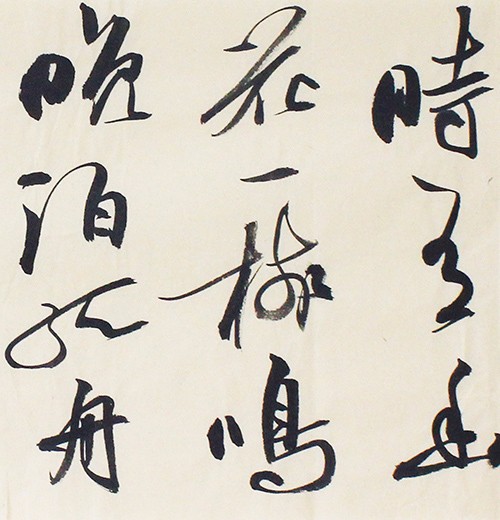 時有幽
花一樹鳴
晚泊孤舟